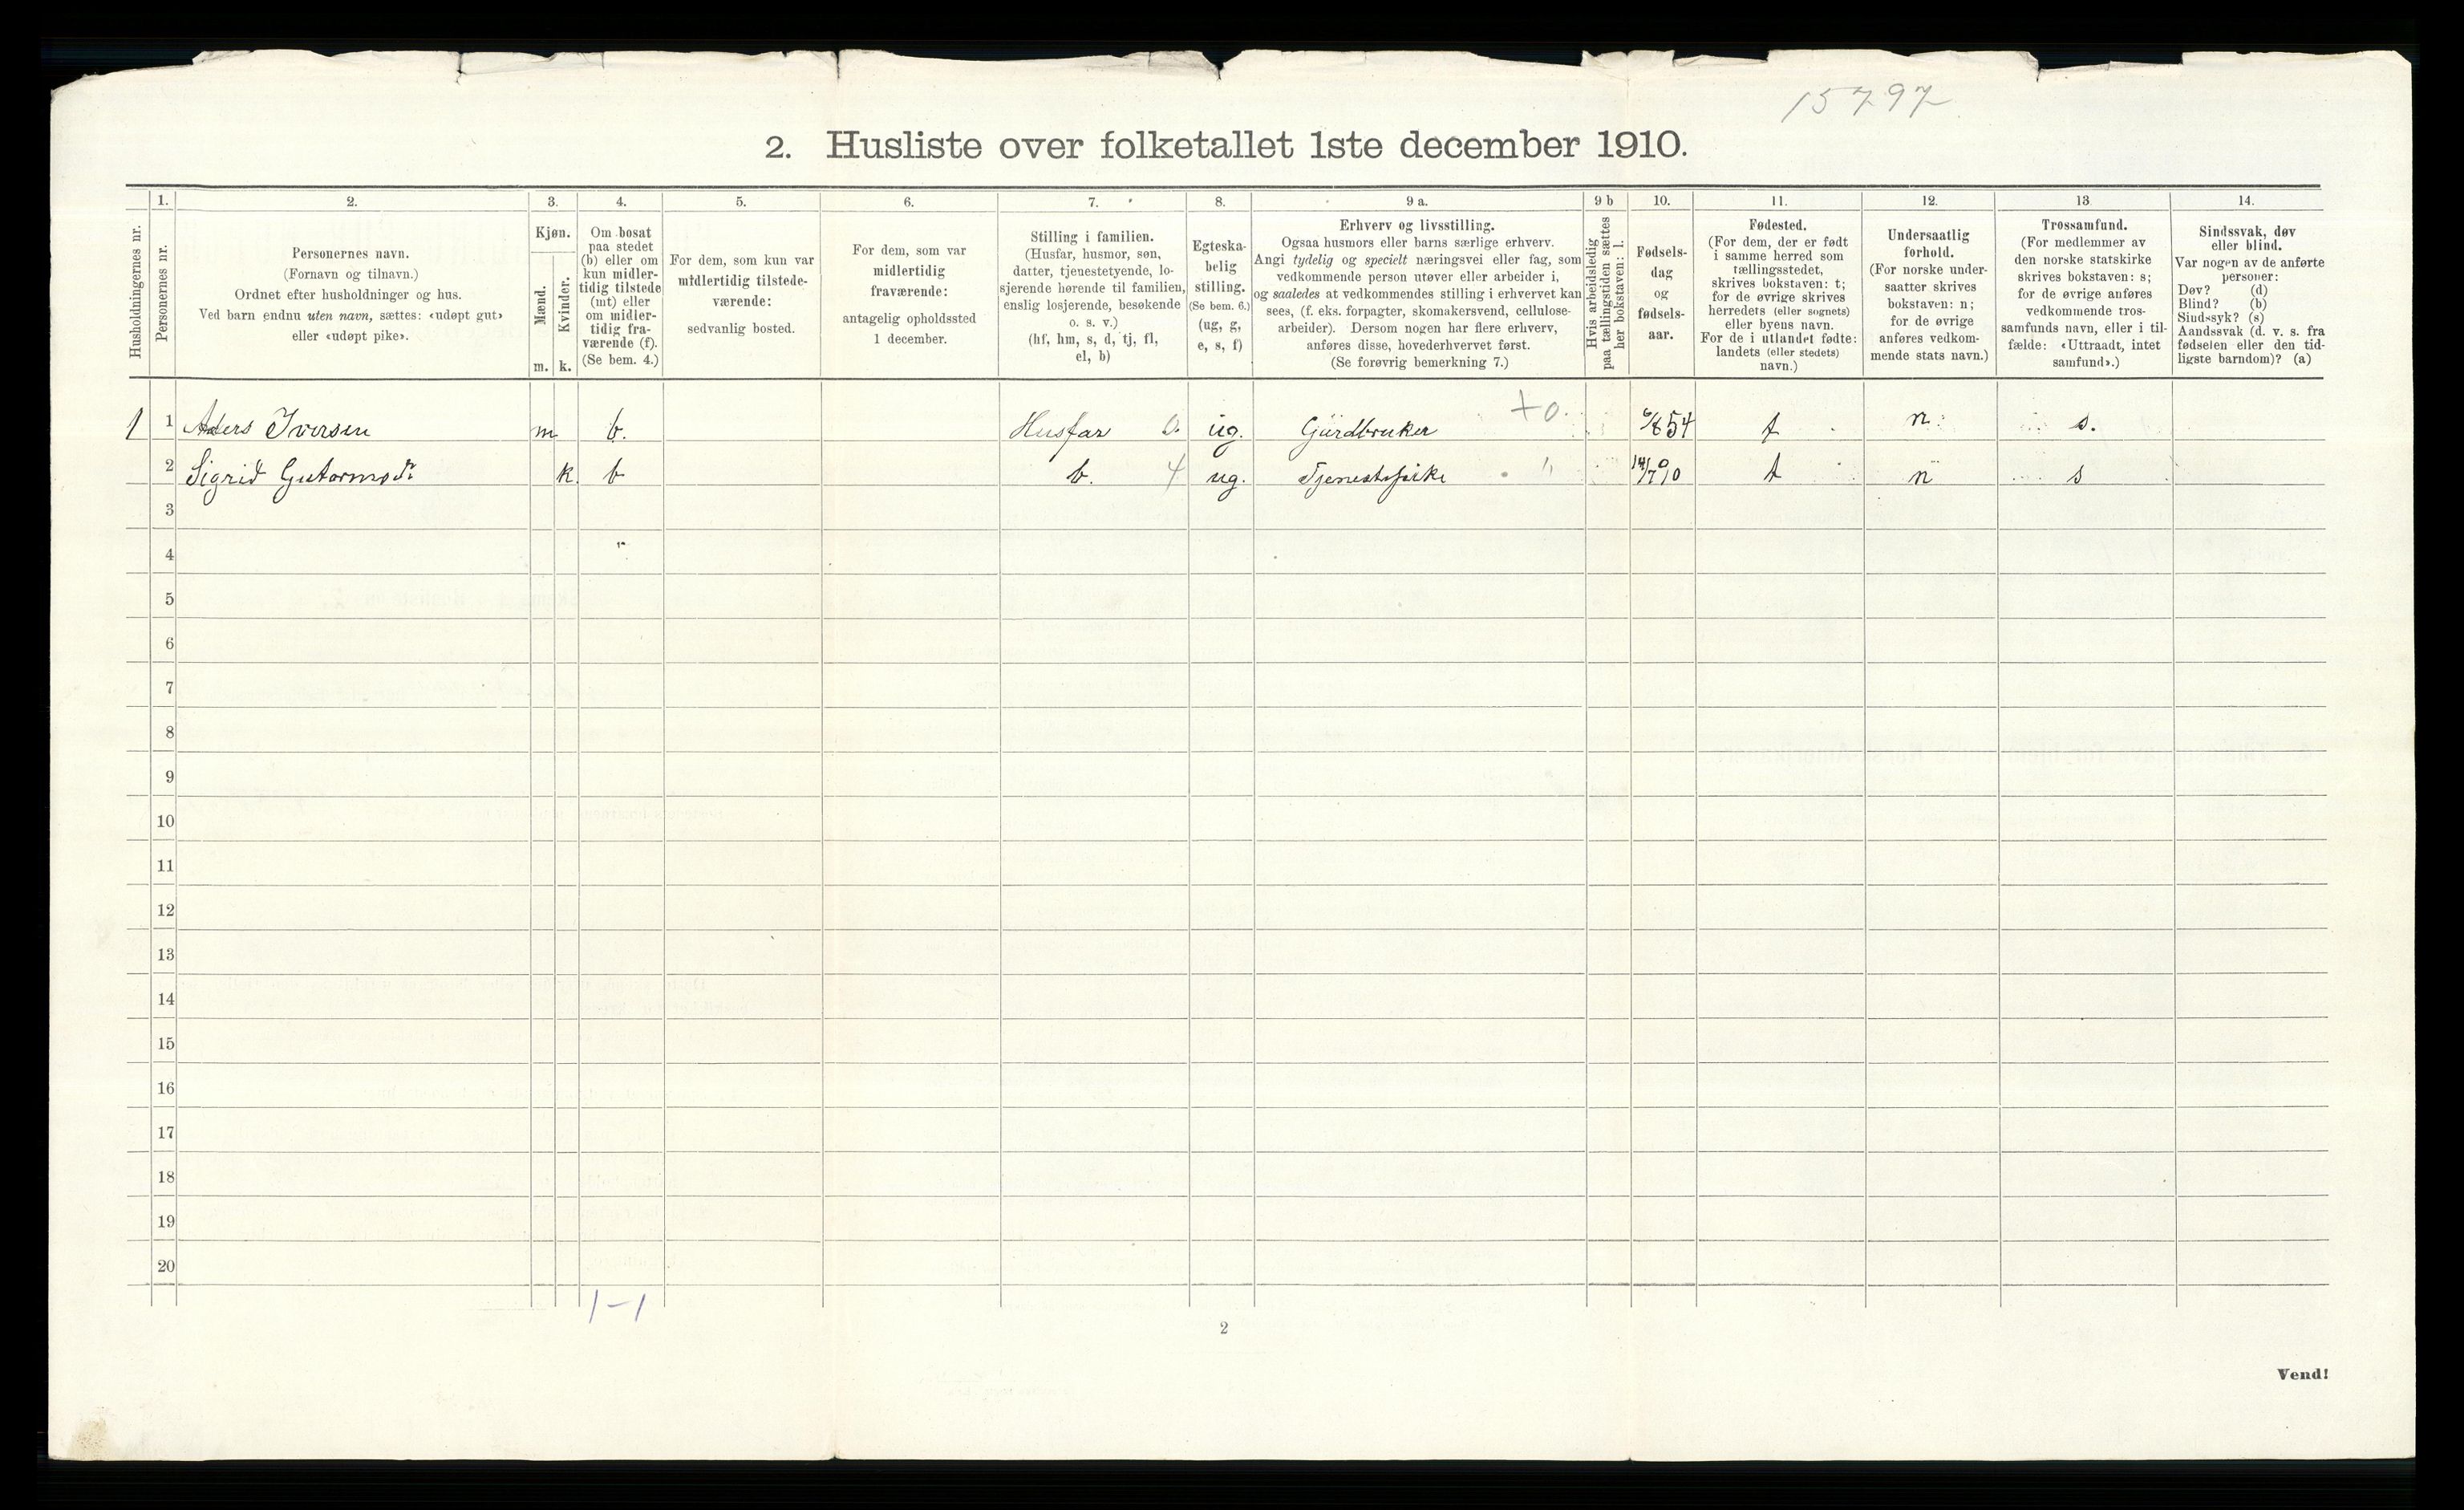 15797
2. Husliste over folketallet 1ste december 1910.
Husholdningernes nr.
1.
Personernes nr.
2.
Personernes navn.
(Fornavn og tilnavn.)
Ordnet efter husholdninger og hus.
Ved barn endnu uten navn, sættes: «udøpt gut»
eller «udøpt pike».
3.
Kjøn.
Mænd.
Kvinder.
m. k.
4.
Om bosat
paa stedet
(b) eller om
kun midler-
tidig tilstede
(mt) eller
om midler-
tidig fra-
værende (f).
(Se bem. 4.)
5.
For dem, som kun var
midlertidig tilstede-
værende:
sedvanlig bosted.
6.
For dem, som var
midlertidig
fraværende:
antagelig opholdssted
1 december.
7.
Stilling i familien.
(Husfar, husmor, søn,
datter, tjenestetyende, lo-
sjerende hørende til familien,
enslig losjerende, besøkende
o. s. v.)
(hf, hm, s, d, tj, fl,
el, b)
8.
Egteska-
belig
stilling.
(Se bem. 6.)
(ug, g,
e, s, f)
9 a.
Erhverv og livsstilling.
Ogsaa husmors eller barns særlige erhverv.
Angi tydelig og specielt næringsvei eller fag, som
vedkommende person utøver eller arbeider i,
og saaledes at vedkommendes stilling i erhvervet kan
sees, (f. eks. forpagter, skomakersvend, cellulose-
arbeider). Dersom nogen har flere erhverv,
anføres disse, hovederhvervet først.
(Se forøvrig bemerkning 7.)
9 b
Hvis arbeidsledig
paa tællingstiden sættes
her bokstaven: l.
10.
Fødsels-
dag
og
fødsels-
aar.
11.
Fødested.
(For dem, der er født
i samme herred som
tællingsstedet,
skrives bokstaven: t;
for de øvrige skrives
herredets (eller sognets)
eller byens navn.
For de i utlandet fødte:
landets (eller stedets)
navn.)
12.
Undersaatlig
forhold.
(For norske under-
saatter skrives
bokstaven: n;
for de øvrige
anføres vedkom-
mende stats navn.)
13
Trossamfund.
(For medlemmer av
den norske statskirke
skrives bokstaven: s;
for de øvrige anføres
vedkommende tros-
samfunds navn, eller i til-
fælde: «Uttraadt, intet
samfund».)
14.
Sindssvak, døv
eller blind.
Var nogen av de anførte
personer:
Døv? (d)
Blind? (b)
Sindssyk? (s)
Aandssvak (d. v. s. fra
fødselen eller den tid-
ligste barndom)? (a)
1 1 Iversen m b. Husfar 0. ug. Gårdbruker +0. 6/8 54 t n. s.
2 Sigrid Gutormsdr k. b b. 4 ug. Tjenestepike 14/7 90 t n s
3
4
5
6
7
8
9
10
11
12
13
14
15
16
17
18
19
20
1-1
2
Vend!